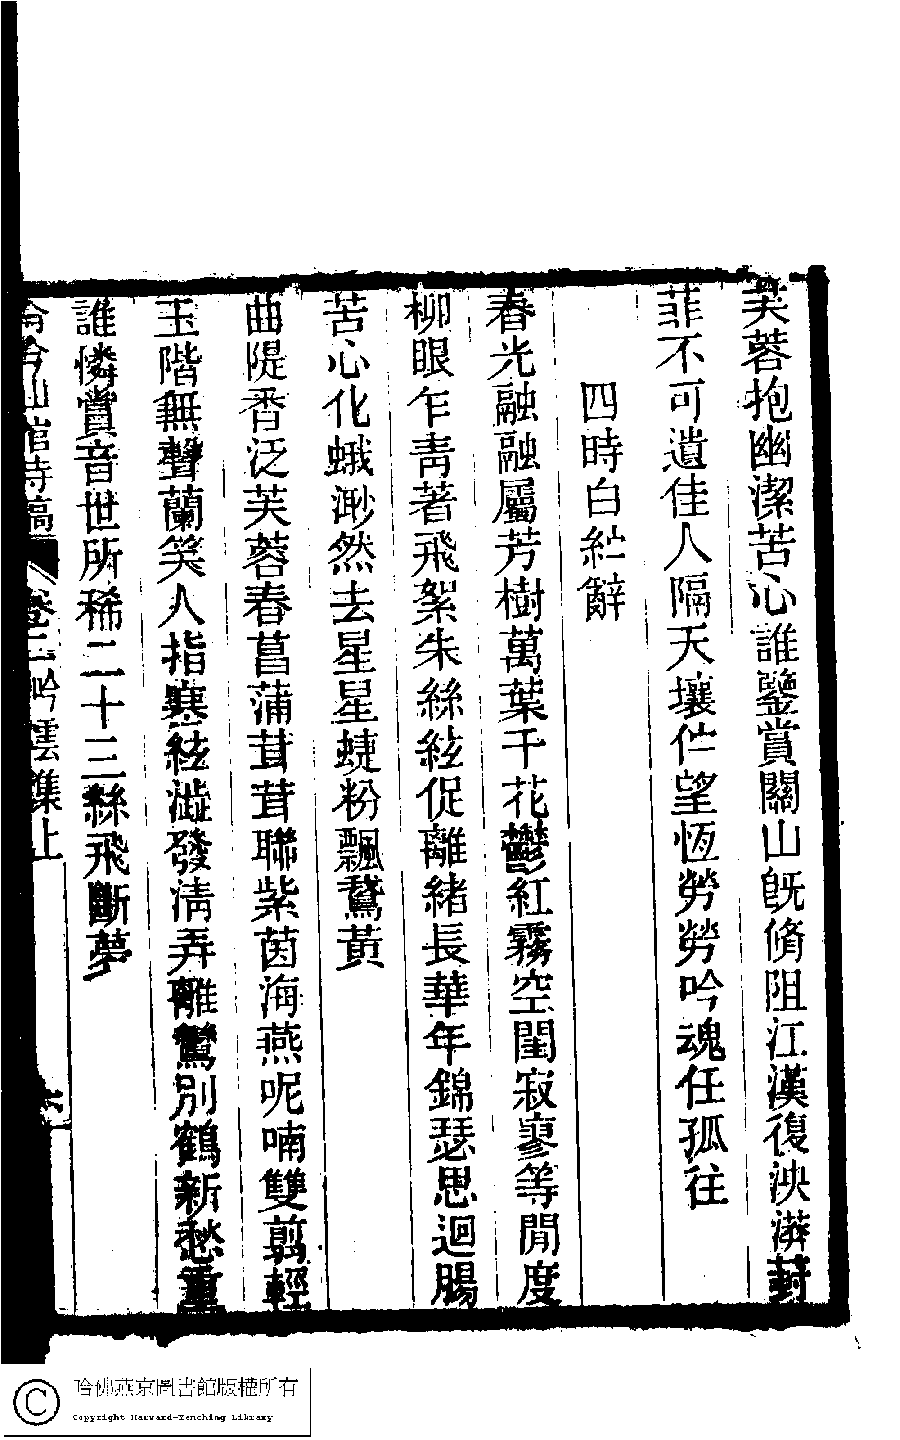 芙蓉抱幽潔苦心誰鑒賞關山旣脩阻江漢復泱漭葑
菲不可遺佳人隔天壤伫望恆勞勞吟魂任孤往
四時白紵辭
春光融融屬芳樹萬葉千花鬱紅霧空閨寂寥等閒度
柳眼乍靑著飛絮朱絲絃促離緒長華年錦瑟思迴腸
苦心化蛾渺然去星星蜨粉飄鵞黃
曲隄香泛芙蓉春菖蒲茸茸聯紫茵海燕呢喃雙剪輕
玉階無聲蘭笑人指寒絃澁發淸弄離鸞別鶴新愁重
誰憐賞音世所稀二十三絲飛斷夢
含今山館詩稿 卷二吟雲集上 六
哈佛燕京圖書館版權所有
Copyright Harvard-Yenching Library